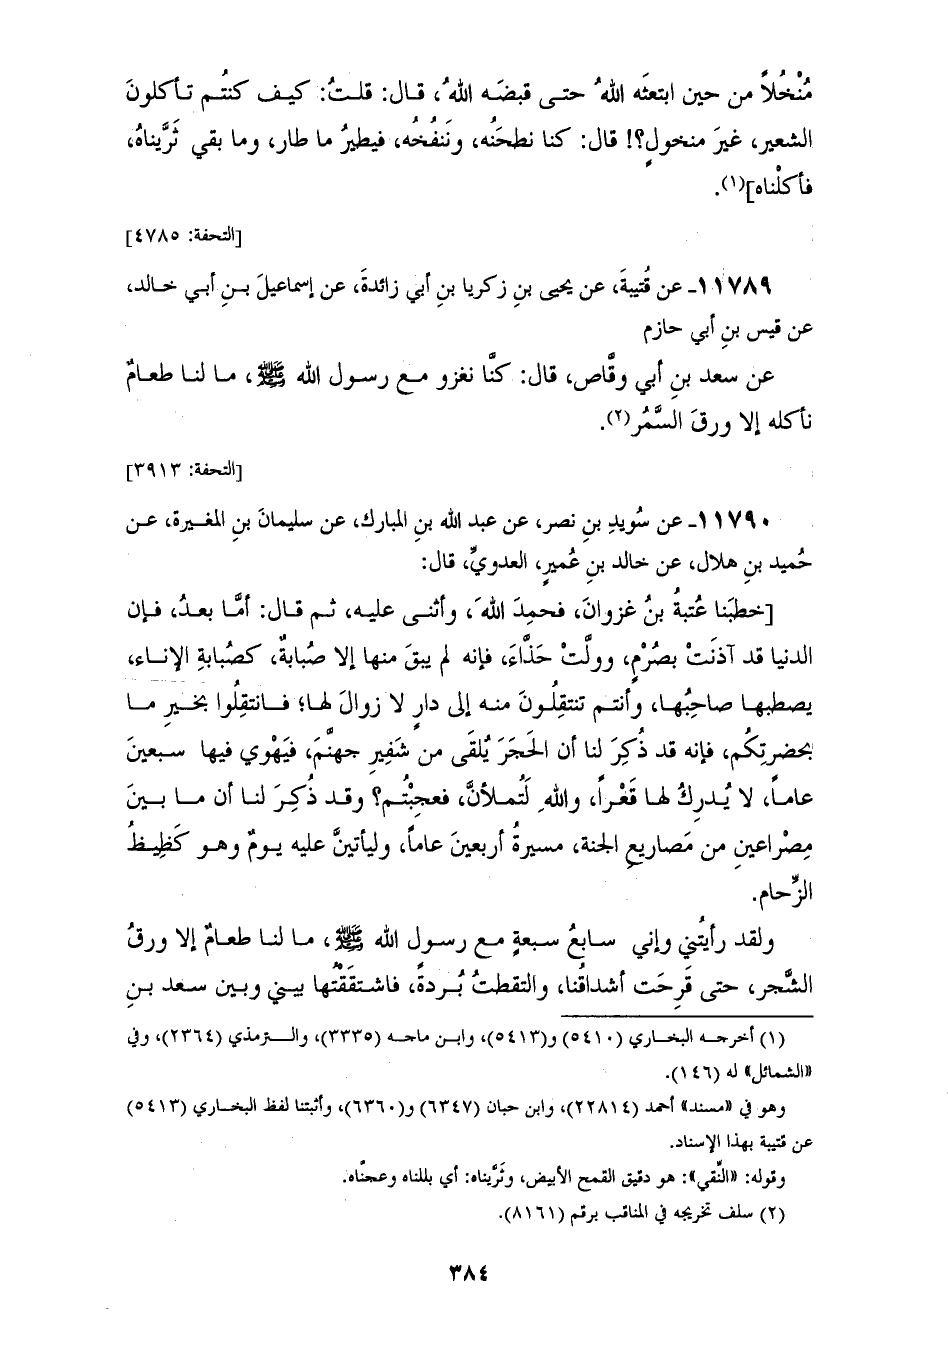 مُنْخُلاً من حين ابتعثَه اللهُ حتى قبضَه اللهُ، قال: قلتُ: كيف كنتُم تأكلونَ
الشعير، غيرَ منخولٍ؟! قال: كنا نطحَنُه، ونَنفُخُه، فيطيرُ ما طار، وما بقي ثَرَّيناهُ،
فأكلْناه](١).
[التحفة: ٤٧٨٥]
١١٧٨٩- عن قُتيبةَ، عن يحيى بنِ زكريا بنِ أبي زائدةَ، عن إسماعيلَ بنِ أبي خالد،
عن قيس بنِ أبي حازم
عن سعد بنِ أبي وقَّاص، قال: كنَّا نغزو مع رسول الله ﷺ، ما لنا طعامٌ
نأكله إلا ورقَ السَّمُر(٢).
[التحفة: ٣٩١٣]
١١٧٩٠- عن سُويدِ بنِ نصر، عن عبد الله بنِ المبارك، عن سليمانَ بنِ المغيرة، عن
حُميد بنِ هلال، عن خالد بنِ عُميرٍ، العدويِّ، قال:
[خطبَنا عُتبةُ بنُ غزوانَ، فحمِدَ اللهَ، وأثنى عليه، ثم قال: أمَّا بعدُ، فإن
الدنيا قد آذنَتْ بصُرْمٍ، وولَّتْ حَذَّاءَ، فإنه لم يبقَ منها إلا صُبابةٌ، كصُبابةِ الإناء،
يصطبها صاحِبُها، وأنتم تنتقِلُونَ منه إلى دارٍ لا زوالَ لها؛ فانتقِلُوا بخَيرِ ما
بحضرتِكُم، فإنه قد ذُكِرَ لنا أن الحَجَرَ يُلقَى من شَفِيرِ جهنَّمَ، فيَهْوي فيها سبعينَ
عاماً، لا يُدرِكُ لها قَعْراً، واللهِ لَتُملأنَّ، فعجِبْتُم؟ وقد ذُكِرَ لنا أن ما بينَ
مِصْراعينِ من مَصاريعِ الجنة، مسيرةُ أربعينَ عاماً، وليأتينَّ عليه يومٌ وهو كَظِيظُ
الزِّحام.
ولقد رأيتُني وإني سابعُ سبعةٍ مع رسول الله ﷺ، ما لنا طعامٌ إلا ورقُ
الشَّجر، حتى قَرِحَت أشداقُنا، والتقطتُ بُردةً، فاشتقَقْتُها بيني وبين سعد بنِ
(١) أخرجه البخاري (٥٤١٠) و(٥٤١٣)، وابن ماجه (٣٣٣٥)، والترمذي (٢٣٦٤)، وفي
«الشمائل» له (١٤٦).
وهو في «مسند» أحمد (٢٢٨١٤)، وابن حبان (٦٣٤٧) و(٦٣٦٠)، وأثبتنا لفظ البخاري (٥٤١٣)
عن قتيبة بهذا الإسناد.
وقوله: «النَّقي»: هو دقيق القمح الأبيض، وثَرَّيناه: أي بللناه وعجنَّاه.
(٢) سلف تخريجه في المناقب برقم (٨١٦١).
٣٨٤